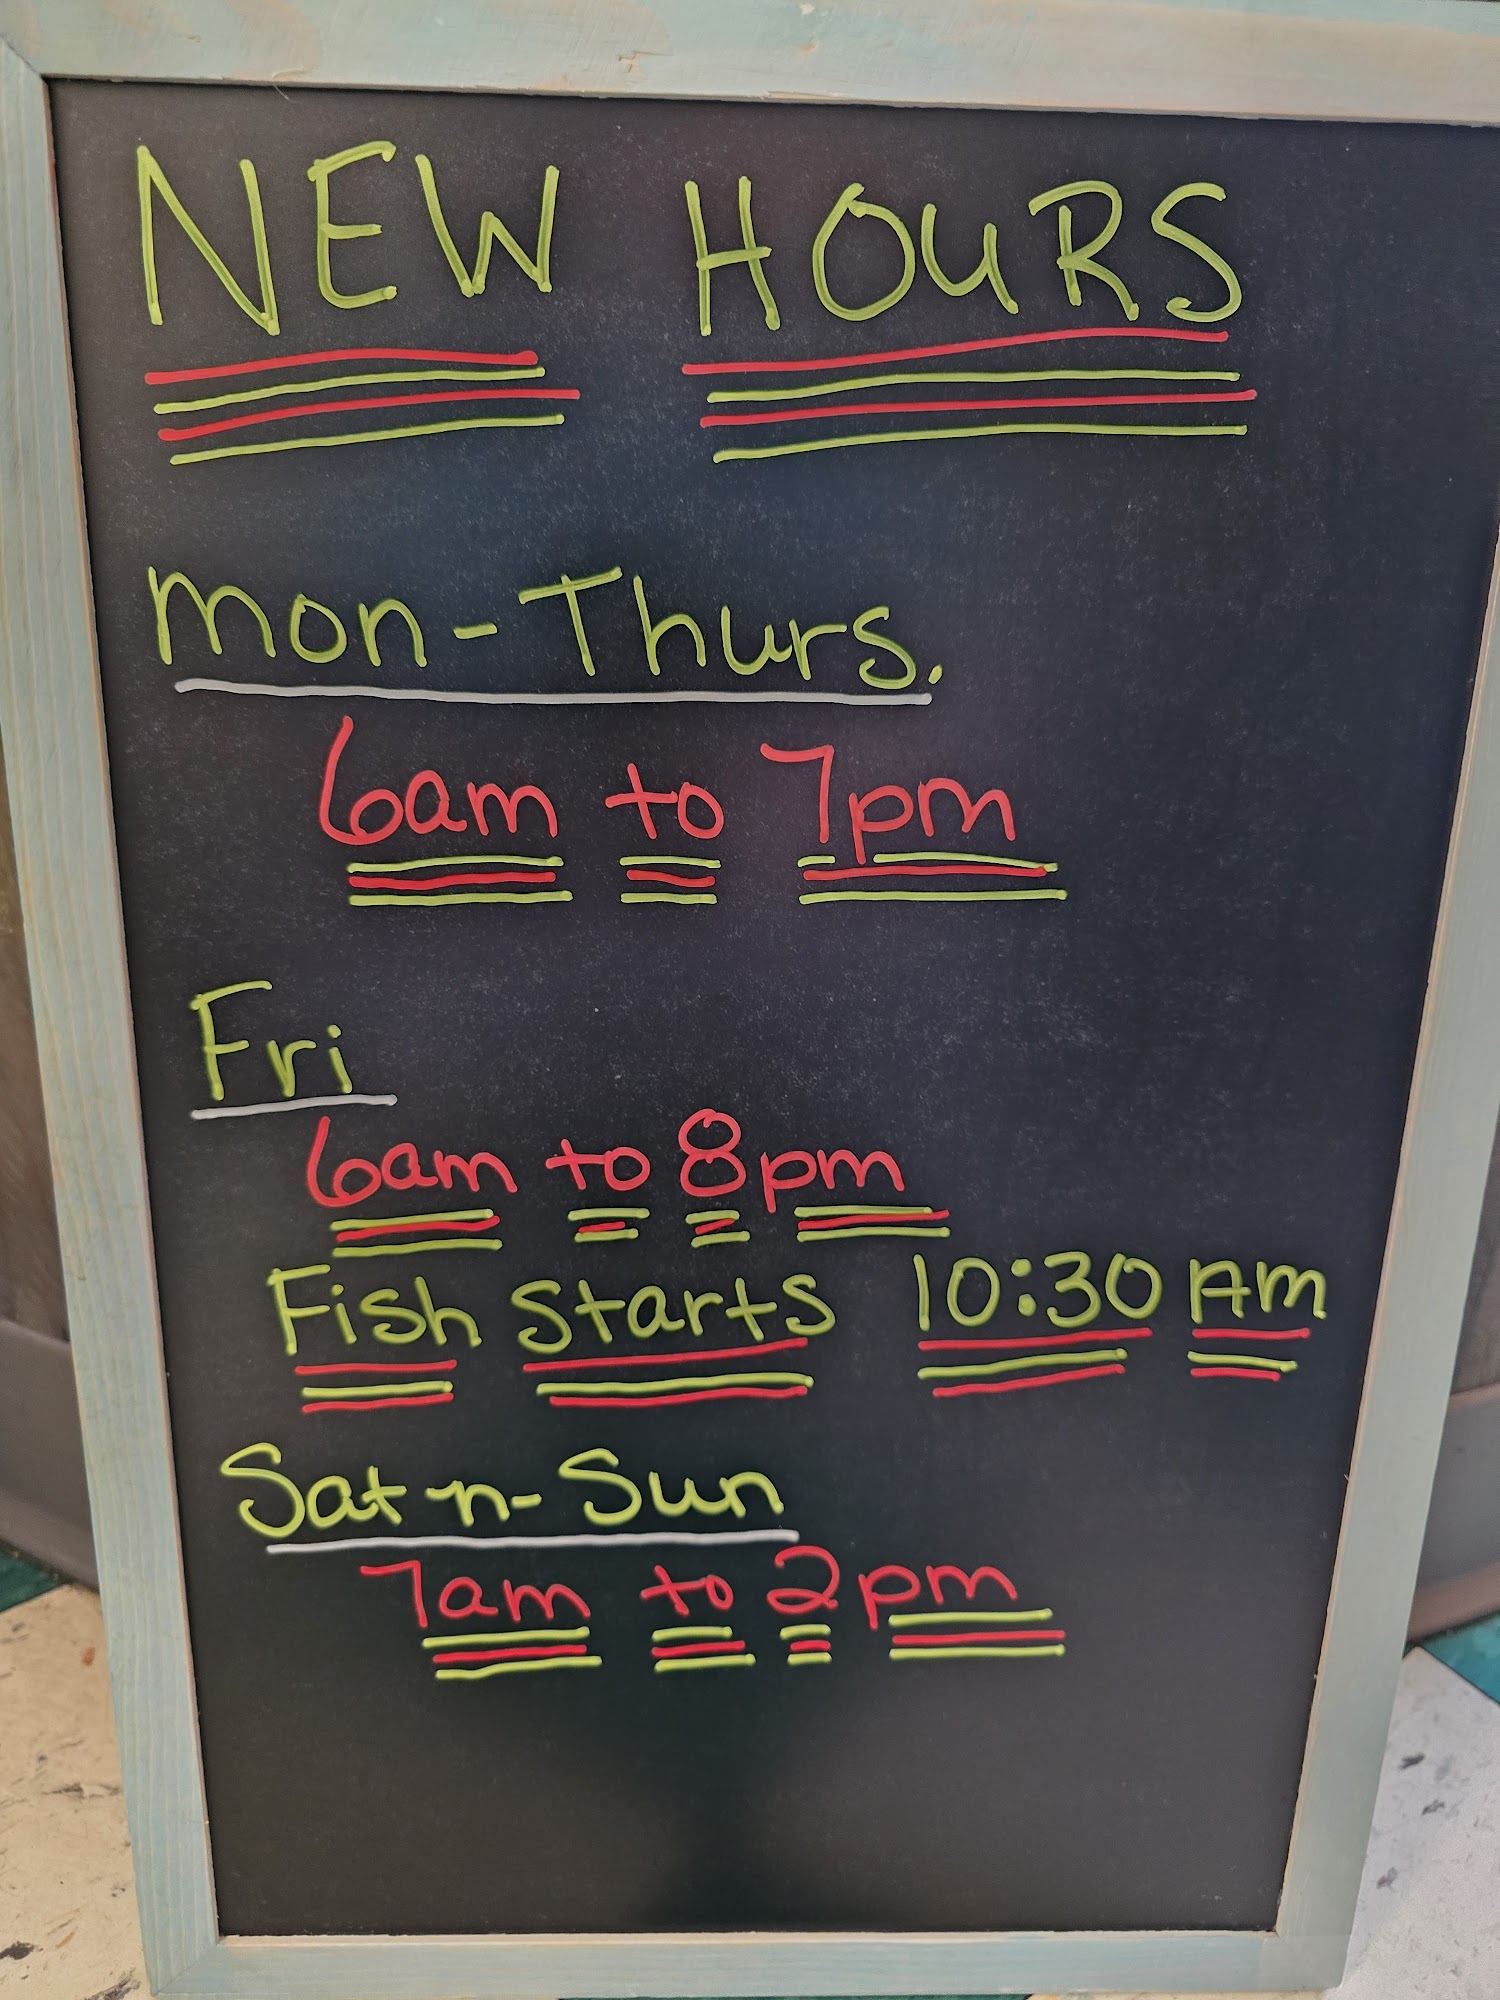 NEW HOURS
Mon-Thurs.
6am to 7pm
Fri
6am to 8pm
Fish Starts 10:30 AM
Sat-n-Sun
7am to 2pm